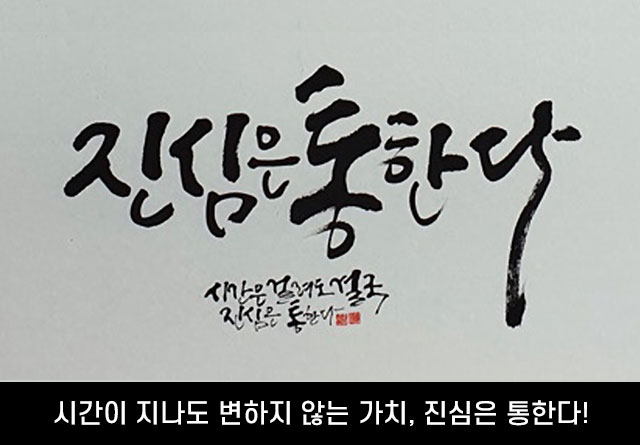 진심은통한다
시간은걸려도결국
진심은통한다
시간이 지나도 변하지 않는 가치, 진심은 통한다!